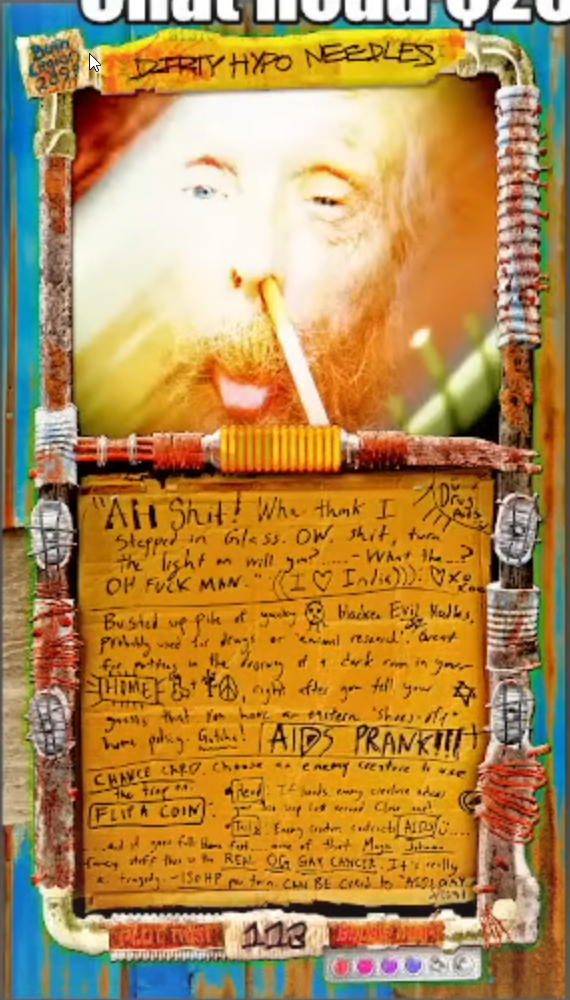 Chat Road $20
Bum
Legion
DIRTY HYPO NEEDLES
"AH Shit! Wha think I
Stepped in Glass. OW. shit, turn
the light on will you?......- What the...?
OH FUCK MAN." ((I ♡ India))). ♡xo
Drug
Ads
Busted up pile of yucky blacken Evil Needles,
probably used for drugs or 'animal research'. Great
for putting in the of a dark room in your
HOME, right after you tell your
guests that you have an eastern "shoes-off"
home policy. Gotcha! AIDS PRANK!!!
CHANCE CARD. Choose an enemy creature to use
the trap on.
FLIP A COIN:
Head: If lands, enemy creature
you
Tails: Enemy creature contracts AIDS
...and it goes full blown fast... none of that Magic Johnson
fancy stuff this is the REAL OG GAY CANCER. It's really
a tragedy. -150HP per turn. CAN BE cured by
113